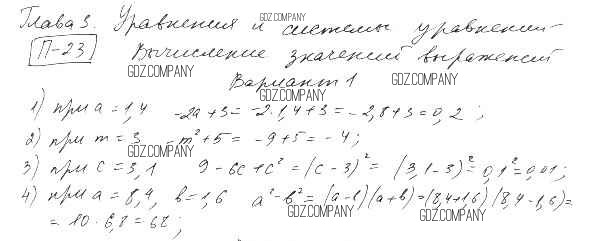 Глава 3. Уравнения и системы уравнений
GDZ.COMPANY
П-23 Вычисление значений выражений
GDZ.COMPANY
GDZ.COMPANY
Вариант 1
GDZ.COMPANY
1) при a = 1,4 -2a+3 = -2·1,4+3 = -2,8+3 = 0,2 ;
2) при m = 3 -m²+5 = -9+5 = -4;
GDZ.COMPANY
3) при c = 3,1 9-6c+c² = (c-3)² = (3,1-3)² = 0,1² = 0,01;
4) при a = 8,4, b = 1,6 a²-b² = (a-b)(a+b) = (8,4+1,6)(8,4-1,6) =
GDZ.COMPANY
GDZ.COMPANY
= 10 · 6,8 = 68 ;